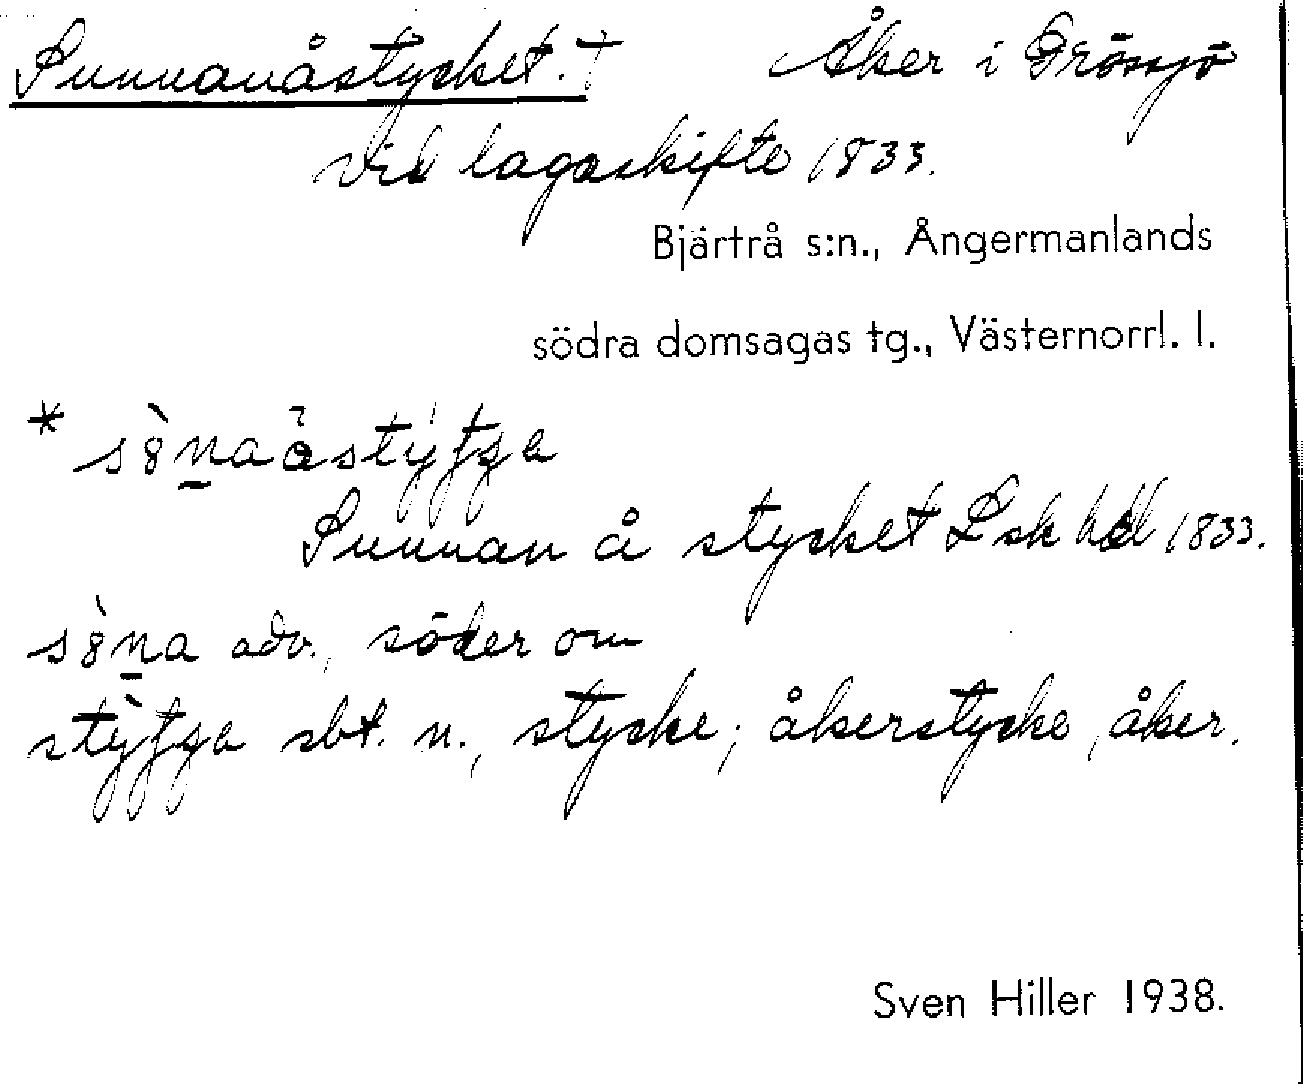 Sunnanåstycket. † Åker i Grössjö
vid lagaskifte 1833.
Bjärtrå s:n., Ångermanlands
södra domsagas tg., Västernorrl. l.
Sunnan å stycket Lsk hdl 1833.
adv., söder om
sbt. n., stycke; åkerstycke, åker.
Sven Hiller 1938.